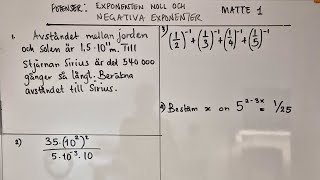 POTENSER: EXPONENTEN NOLL OCH
NEGATIVA EXPONENTER
MATTE 1
1. Avståndet mellan jorden
och solen är 1,5·10¹¹m. Till
Stjärnan Sirius är det 540 000
gånger så långt. Beräkna
avståndet till Sirius.
2) 35·(10²)²
5·10⁻³·10
3) (1/2)⁻¹+(1/3)⁻¹+(1/4)⁻¹+(1/5)⁻¹
Bestäm x om 5²⁻³ˣ = 1/25